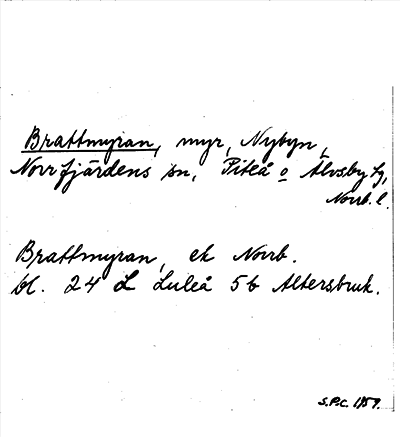 Brattmyran, myr, Nybyn,
Norrfjärdens sn, Piteå o Älvsby tg,
Norrb. l.
Brattmyran, ek Norrb.
bl. 24 L Luleå 5b Altersbruk.
S.P.C. 1959.